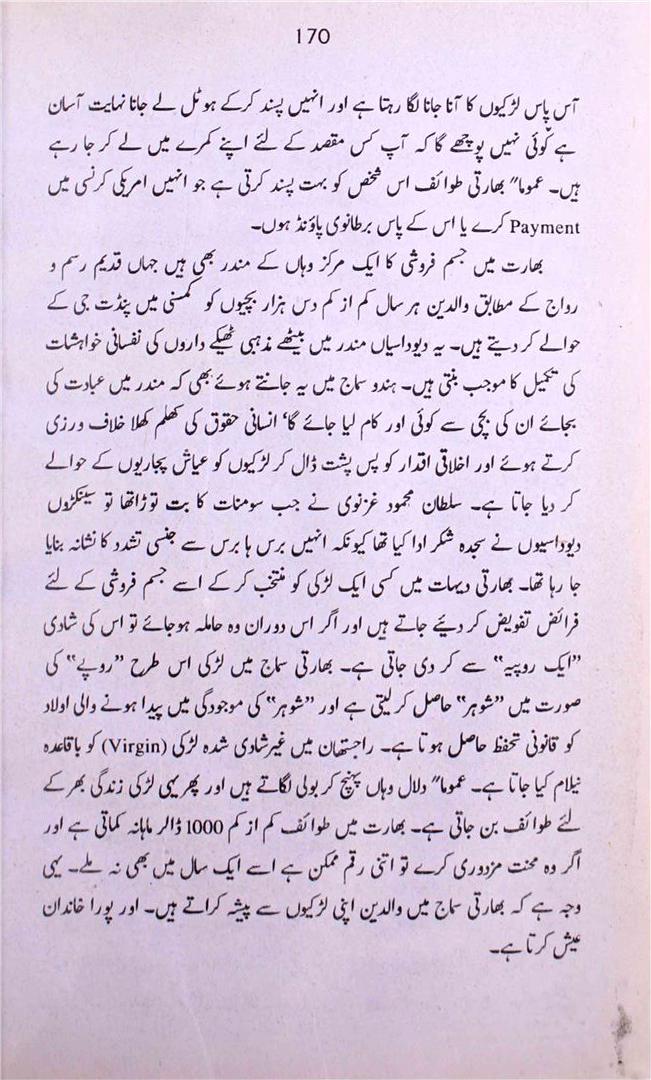 170
آس پاس لڑکیوں کا آنا جانا لگا رہتا ہے اور انہیں پسند کرکے ہوٹل لے جانا نہایت آسان
ہے کوئی نہیں پوچھے گا کہ آپ کس مقصد کے لئے اپنے کمرے میں لے کر جا رہے
ہیں۔ عموما" بھارتی طوائف اس شخص کو بہت پسند کرتی ہے جو انہیں امریکی کرنسی میں
Payment کرے یا اس کے پاس برطانوی پاؤنڈ ہوں۔
بھارت میں جسم فروشی کا ایک مرکز وہاں کے مندر بھی ہیں جہاں قدیم رسم و
رواج کے مطابق والدین ہر سال کم از کم دس ہزار بچیوں کو کمسنی میں پنڈت جی کے
حوالے کر دیتے ہیں۔ یہ دیوداسیاں مندر میں بیٹھے مذہبی ٹھیکے داروں کی نفسانی خواہشات
کی تکمیل کا موجب بنتی ہیں۔ ہندو سماج میں یہ جانتے ہوئے بھی کہ مندر میں عبادت کی
بجائے ان کی بچی سے کوئی اور کام لیا جائے گا' انسانی حقوق کی کھلم کھلا خلاف ورزی
کرتے ہوئے اور اخلاقی اقدار کو پس پشت ڈال کر لڑکیوں کو عیاش پجاریوں کے حوالے
کر دیا جاتا ہے۔ سلطان محمود غزنوی نے جب سومنات کا بت توڑا تھا تو سینکڑوں
دیوداسیوں نے سجدہ شکر ادا کیا تھا کیونکہ انہیں برس ہا برس سے جنسی تشدد کا نشانہ بنایا
جا رہا تھا۔ بھارتی دیہات میں کسی ایک لڑکی کو منتخب کر کے اسے جسم فروشی کے لئے
فرائض تفویض کر دیئے جاتے ہیں اور اگر اس دوران وہ حاملہ ہوجائے تو اس کی شادی
"ایک روپیہ" سے کر دی جاتی ہے۔ بھارتی سماج میں لڑکی اس طرح "روپے" کی
صورت میں "شوہر" حاصل کرلیتی ہے اور "شوہر" کی موجودگی میں پیدا ہونے والی اولاد
کو قانونی تحفظ حاصل ہوتا ہے۔ راجستھان میں غیر شادی شدہ لڑکی (Virgin) کو باقاعدہ
نیلام کیا جاتا ہے۔ عموما" دلال وہاں پہنچ کر بولی لگاتے ہیں اور پھر یہی لڑکی زندگی بھر کے
لئے طوائف بن جاتی ہے۔ بھارت میں طوائف کم از کم 1000 ڈالر ماہانہ کماتی ہے اور
اگر وہ محنت مزدوری کرے تو اتنی رقم ممکن ہے اسے ایک سال میں بھی نہ ملے۔ یہی
وجہ ہے کہ بھارتی سماج میں والدین اپنی لڑکیوں سے پیشہ کراتے ہیں۔ اور پورا خاندان
عیش کرتا ہے۔